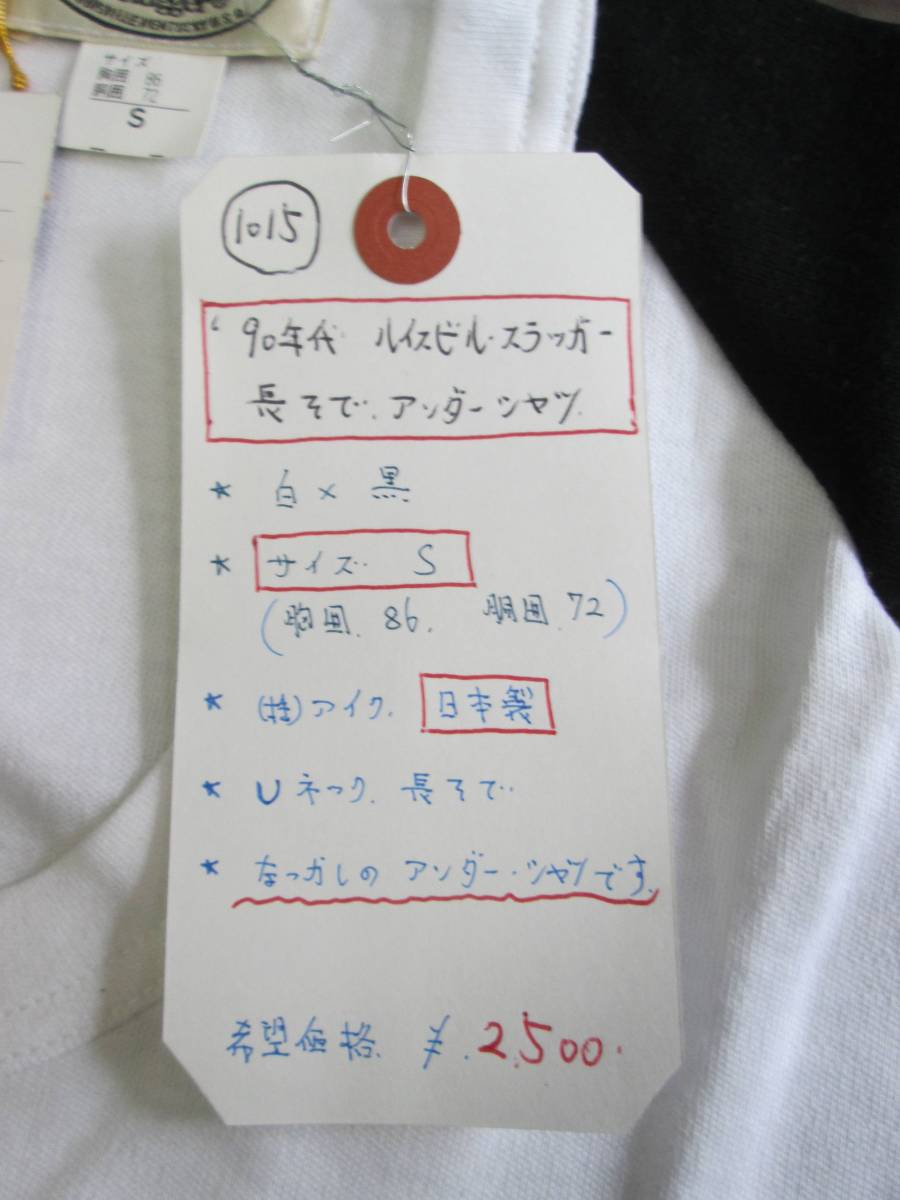 サイズ
胸囲 86
胴囲 72
S
1015
'90年代 ルイスビル・スラッガー
長そで.アンダーシャツ.
★ 白×黒
★ サイズ S
(胸囲.86. 胴囲.72)
★ (株)アイク. 日本製
★ Uネック.長そで
★ なつかしの アンダー・シャツです.
希望価格 ¥.2,500.